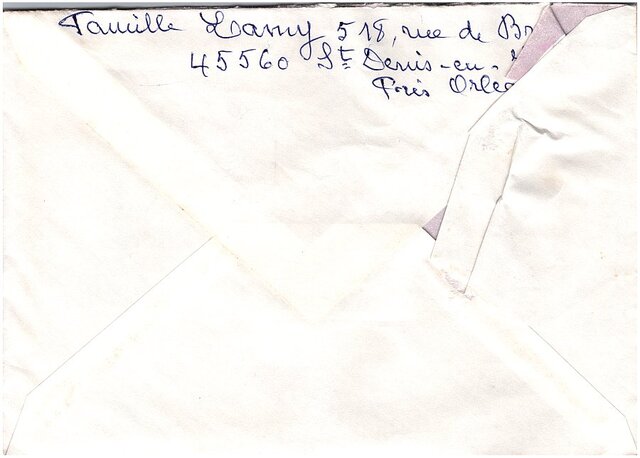 Famille Lamy 518, rue de Br
45560 St Denis-en-
Près Orlea